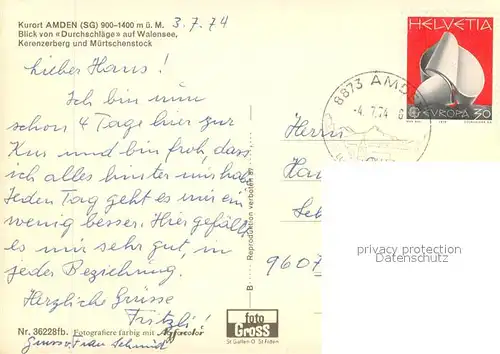 Kurort AMDEN (SG) 900–1400 m ü. M. 3.7.74
Blick von «Durchschläge» auf Walensee,
Kerenzerberg und Mürtschenstock
Lieber Hans!
Ich bin nun
schon 4 Tage hier zur
Kur und bin froh, dass
ich alles hinter mir hab
Jeden Tag geht es mir ein
wenig besser. Hier gefällt
es mir sehr gut, in
jeder Beziehung.
Herzliche Grüsse
Fritzli!
Gruss v. Frau Schmid
Nr. 36228fb. Fotografiere farbig mit Agfacolor
B Reproduktion verboten
foto
Gross
St. Gallen O St. Fiden
HELVETIA
EUROPA 30
8873 AMDEN
-4.7.74
Herrn
9607
privacy protection
Datenschutz